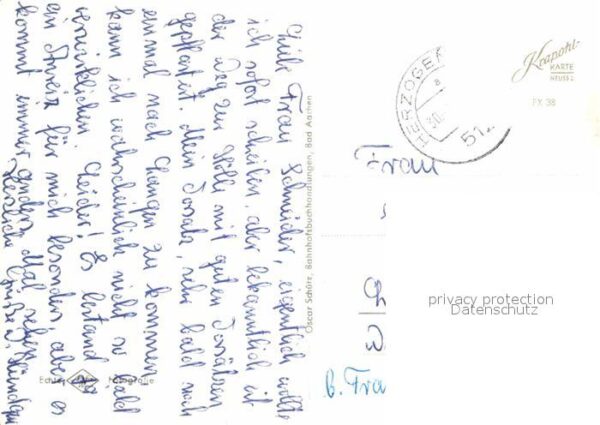 Liebe Frau Schneider, eigentlich wollte
ich sofort schreiben, aber bekanntlich ist
der Weg zur Hölle mit guten Vorsätzen
gepflastert. Mein Vorsatz, sehr bald noch
einmal nach zu kommen
kann ich wahrscheinlich nicht so bald
verwirklichen. Leider! Es bestand
ein Anreiz für mich besonders, aber es
kommt immer anders. Mal sehen.
Herzliche Grüße
Oscar Schütz, Bahnhofsbuchhandlungen, Bad Aachen
Echte Fotografie
Krapohl
KARTE
NEUSS
PX 38
HERZOGEN
512
Frau
b. Fra
privacy protection
Datenschutz